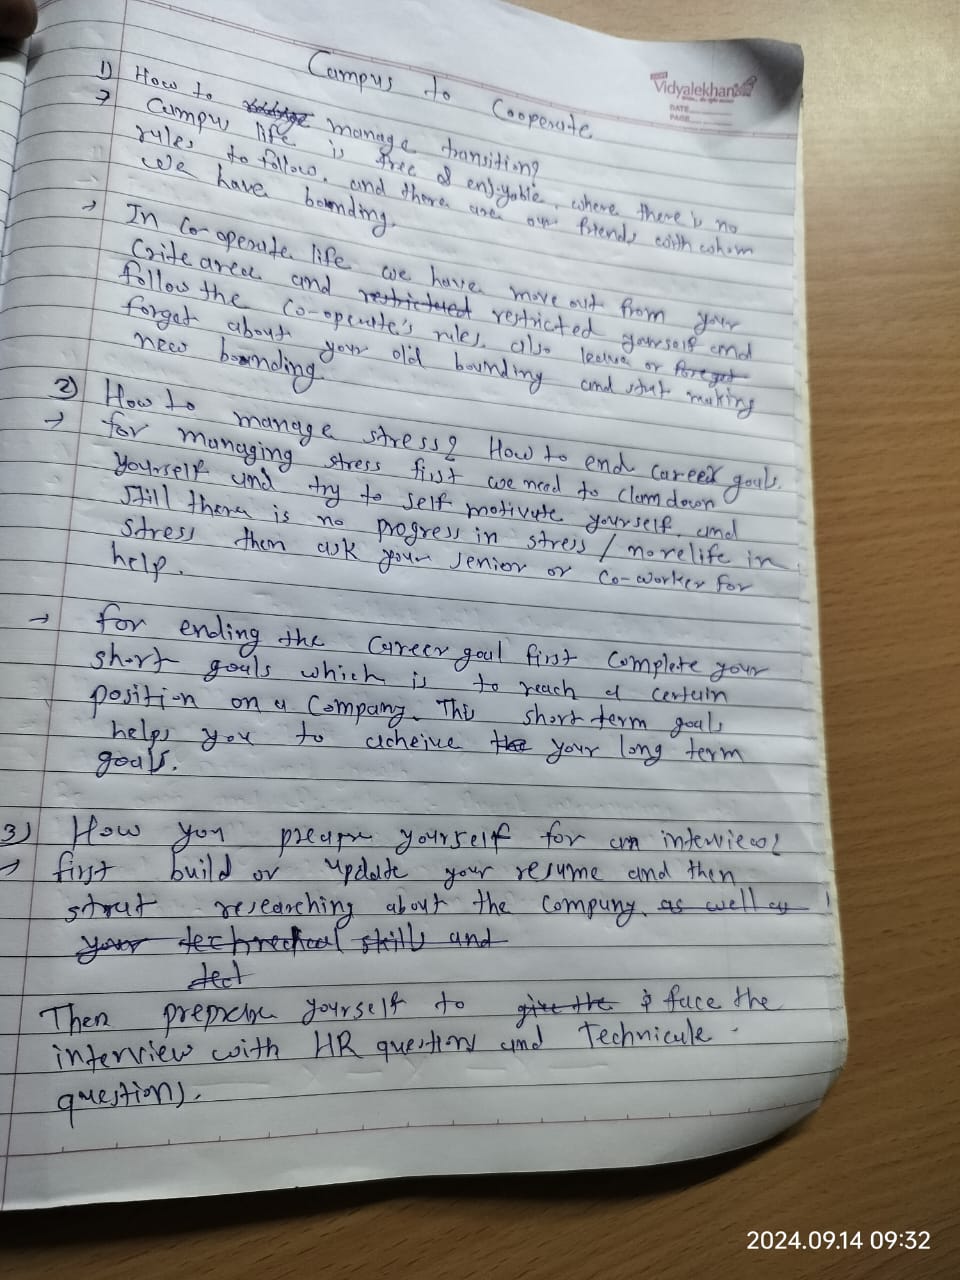 Campus to Cooperate
Vidyalekhan
DATE
PAGE
1) How to manage transition?
→ Campu life is free & enjoyable, where there is no
rules to follow, and there are our friends with whom
we have bounding.
→ In Co-operate life we have move out from your
Crite area and restricted restricted yourself and
follow the Co-operate's rules, also leave or foreget
forget about your old bounding and start making
new bounding
2) How to manage stress? How to end career goals.
→ for managing stress first we need to clamdown
yourself and try to self motivate yourself, and
still there is no progress in stress / more life in
stress them ask your senior or co-worker for
help.
→ for ending the career goal first complete your
short goals which is to reach a certain
position on a Company. This short term goals
helps you to acheive the your long term
goals.
3) How you preapre yourself for an interview?
→ first build or update your resume and then
strat researching about the company. as well as
your technical skills and
tect
Then preprare yourself to give the face the
interview with HR questions and Technicale
questions.
2024.09.14 09:32